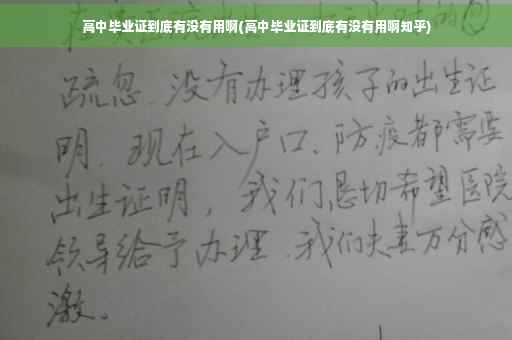 高中毕业证到底有没有用啊(高中毕业证到底有没有用啊知乎)
疏忽、没有办理孩子的出生证
明。现在入户口、防疫都需要
出生证明，我们恳切希望医院
领导给予办理、我们夫妻万分感
激。